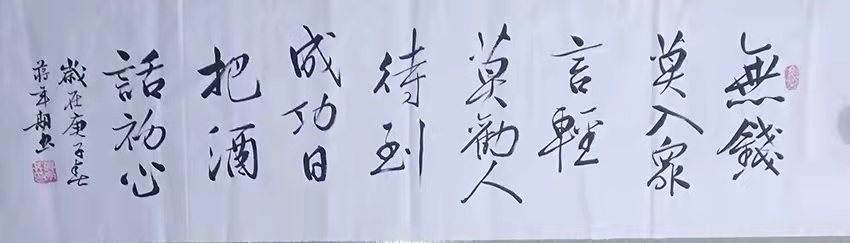 無錢
莫入眾
言輕
莫勸人
待到
成功日
把酒
話初心
歲在庚子春